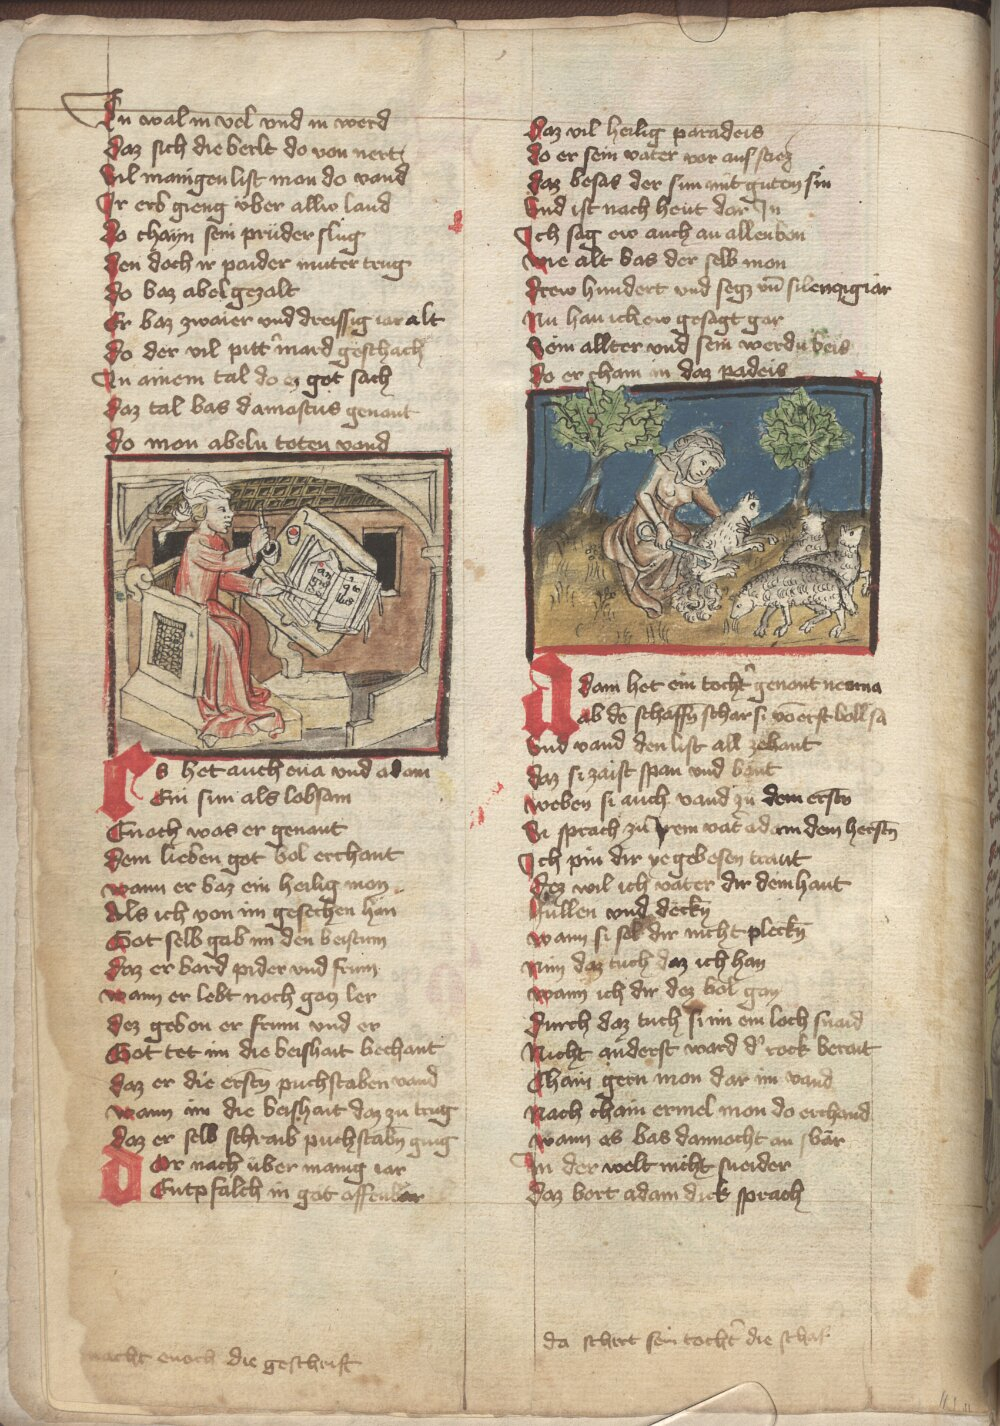 In wal in vel vnd in werd
daz sich die berlt do von nert
Vil manigen list mon do vand
Ir erb gieng vber alliv land
do chayn sein prüder slug
den doch ir paider muter trug
do baz abel gezalt
Er baz zwaier vnd dreissig iar alt
do der vil pitt mard geschach
In ainem tal do ez got sach
daz tal bas damascus genant
do mon abeln toten vand
Es het auch eua vnd adam
Ein sun als lobsam
Enoch was er genant
dem lieben got bol erchant
wann er baz ein heilig mon
Als ich von im gesechen han
Got selb gab im den beistum
daz er bard pider vnd frum
wann er lebt noch gog ler
dez gebon er frum vnd er
Got tet im die beishait bechant
daz er die ersten puchstaben vand
wann im die beishait daz zu trug
daz er selb schraib puchstabn gnug
dor nach vber manig iar
Entpfalch in got offenbar
macht enoch die geschrift
daz vil heilig paradeis
do er sein vater vor auf steig
daz besas der sun mit guten sin
Vnd ist nach heut dar In
Ich sag ew auch an allen bon
wie alt bas der selb mon
drew hundert vnd segz vn silenczig iar
Nu han ich ew gesagt gar
Sein allter vnd sein werdu beis
do er cham in daz padeis
adam het ein tocht genant neoma
ab de schaffn schar si von erst boll sa
Vnd vand den list all zehant
daz si zaist span vnd bant
weben si auch vand zu dem ersten
Si sprach zu yrem vat adam dem hersten
Ich pin dir ye gebesen traut
dez wil ich vater dir dein haut
füllen vnd deckn
wann si sol dir nicht pleckn
Nim daz tuch daz ich han
wann ich dir dez bol gan
durch daz tuch si im ein loch snaid
Nicht anderst ward d rock berait
Chain gern mon dar im vand
Nach chain ermel mon do erchand
wann es bas dannocht an var
In der welt nicht sneider
daz bort adam dick sprach
da schert sein tocht die schaf